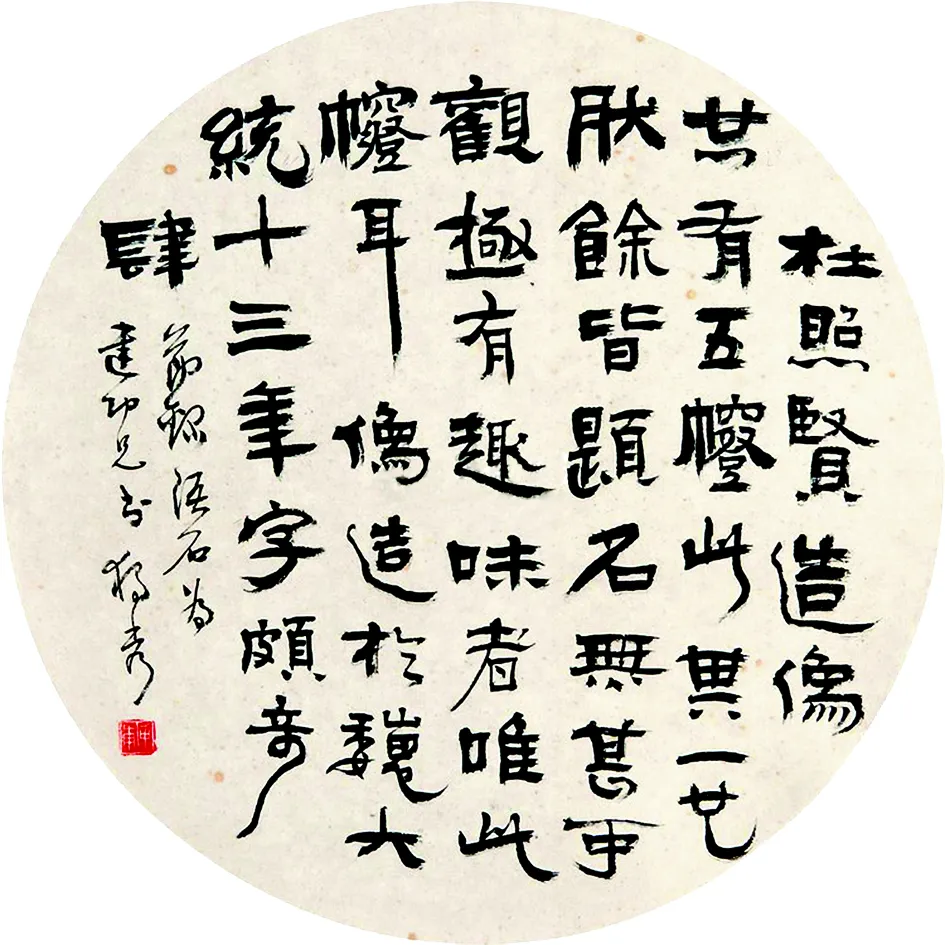 杜照賢造像
共有五㡧此其一也
肰餘皆題名無甚可
觀極有趣味者唯此
㡧耳像造於魏大
統十三年字頗奇
肆
節録語石為
建功兄書獨秀